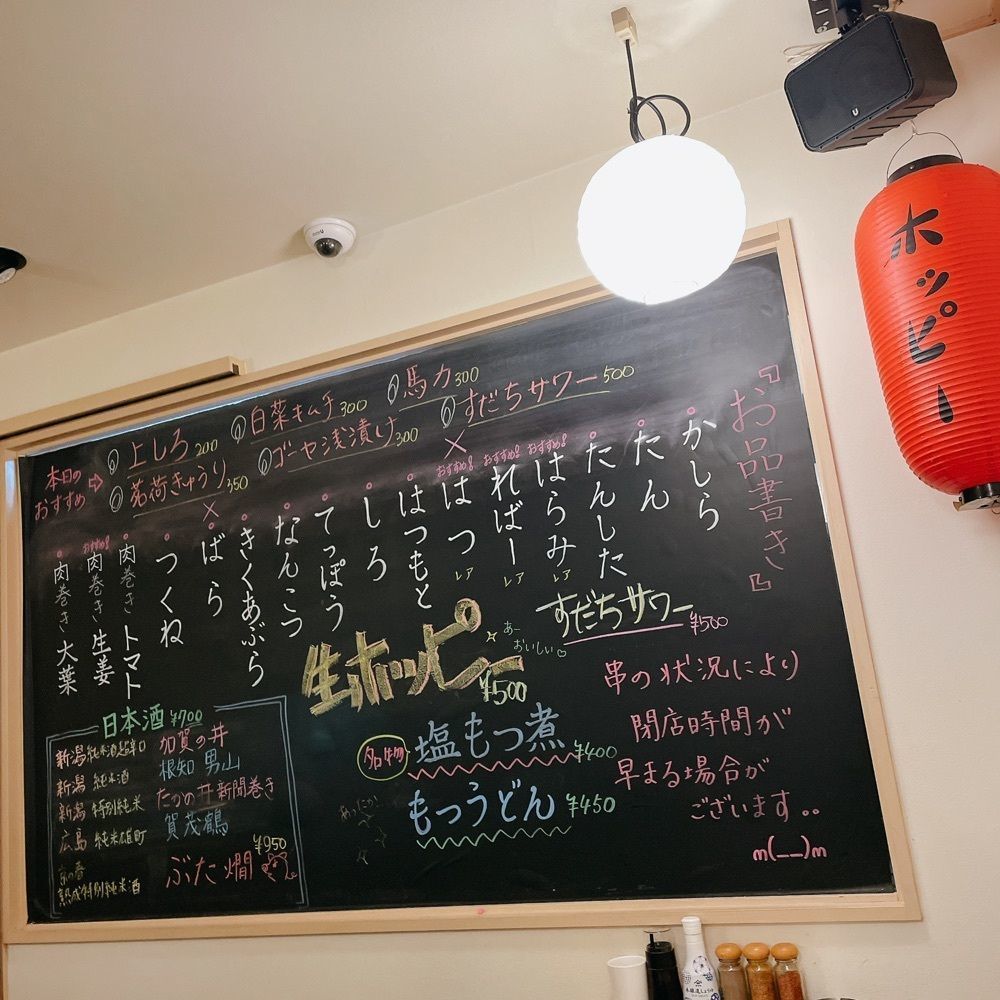 ホッピー
『お品書き』
本日の
おすすめ⇨
上しろ 200
白菜キムチ 300
馬力 300
茗荷きゅうり 350
ゴーヤ浅漬け 300
すだちサワー 500
かしら
たん
たんした
おすすめ! はらみ レア
おすすめ! ればー レア
おすすめ! はつ レア
はつもと
しろ
てっぽう
なんこつ
きくあぶら
ばら
つくね
肉巻き トマト
おすすめ! 肉巻き 生姜
肉巻き 大葉
すだちサワー ¥500
生ホッピー ¥500
あー
おいしい♡
塩もつ煮 ¥400
もつうどん ¥450
串の状況により
閉店時間が
早まる場合が
ございます..
m(__)m
日本酒 ¥700
新潟 純米酒超辛口 加賀の井
新潟 純米酒 根知 男山
新潟 特別純米 たかの井 新聞巻き
広島 純米雄町 賀茂鶴
¥950
熟成特別純米酒 ぶた燗